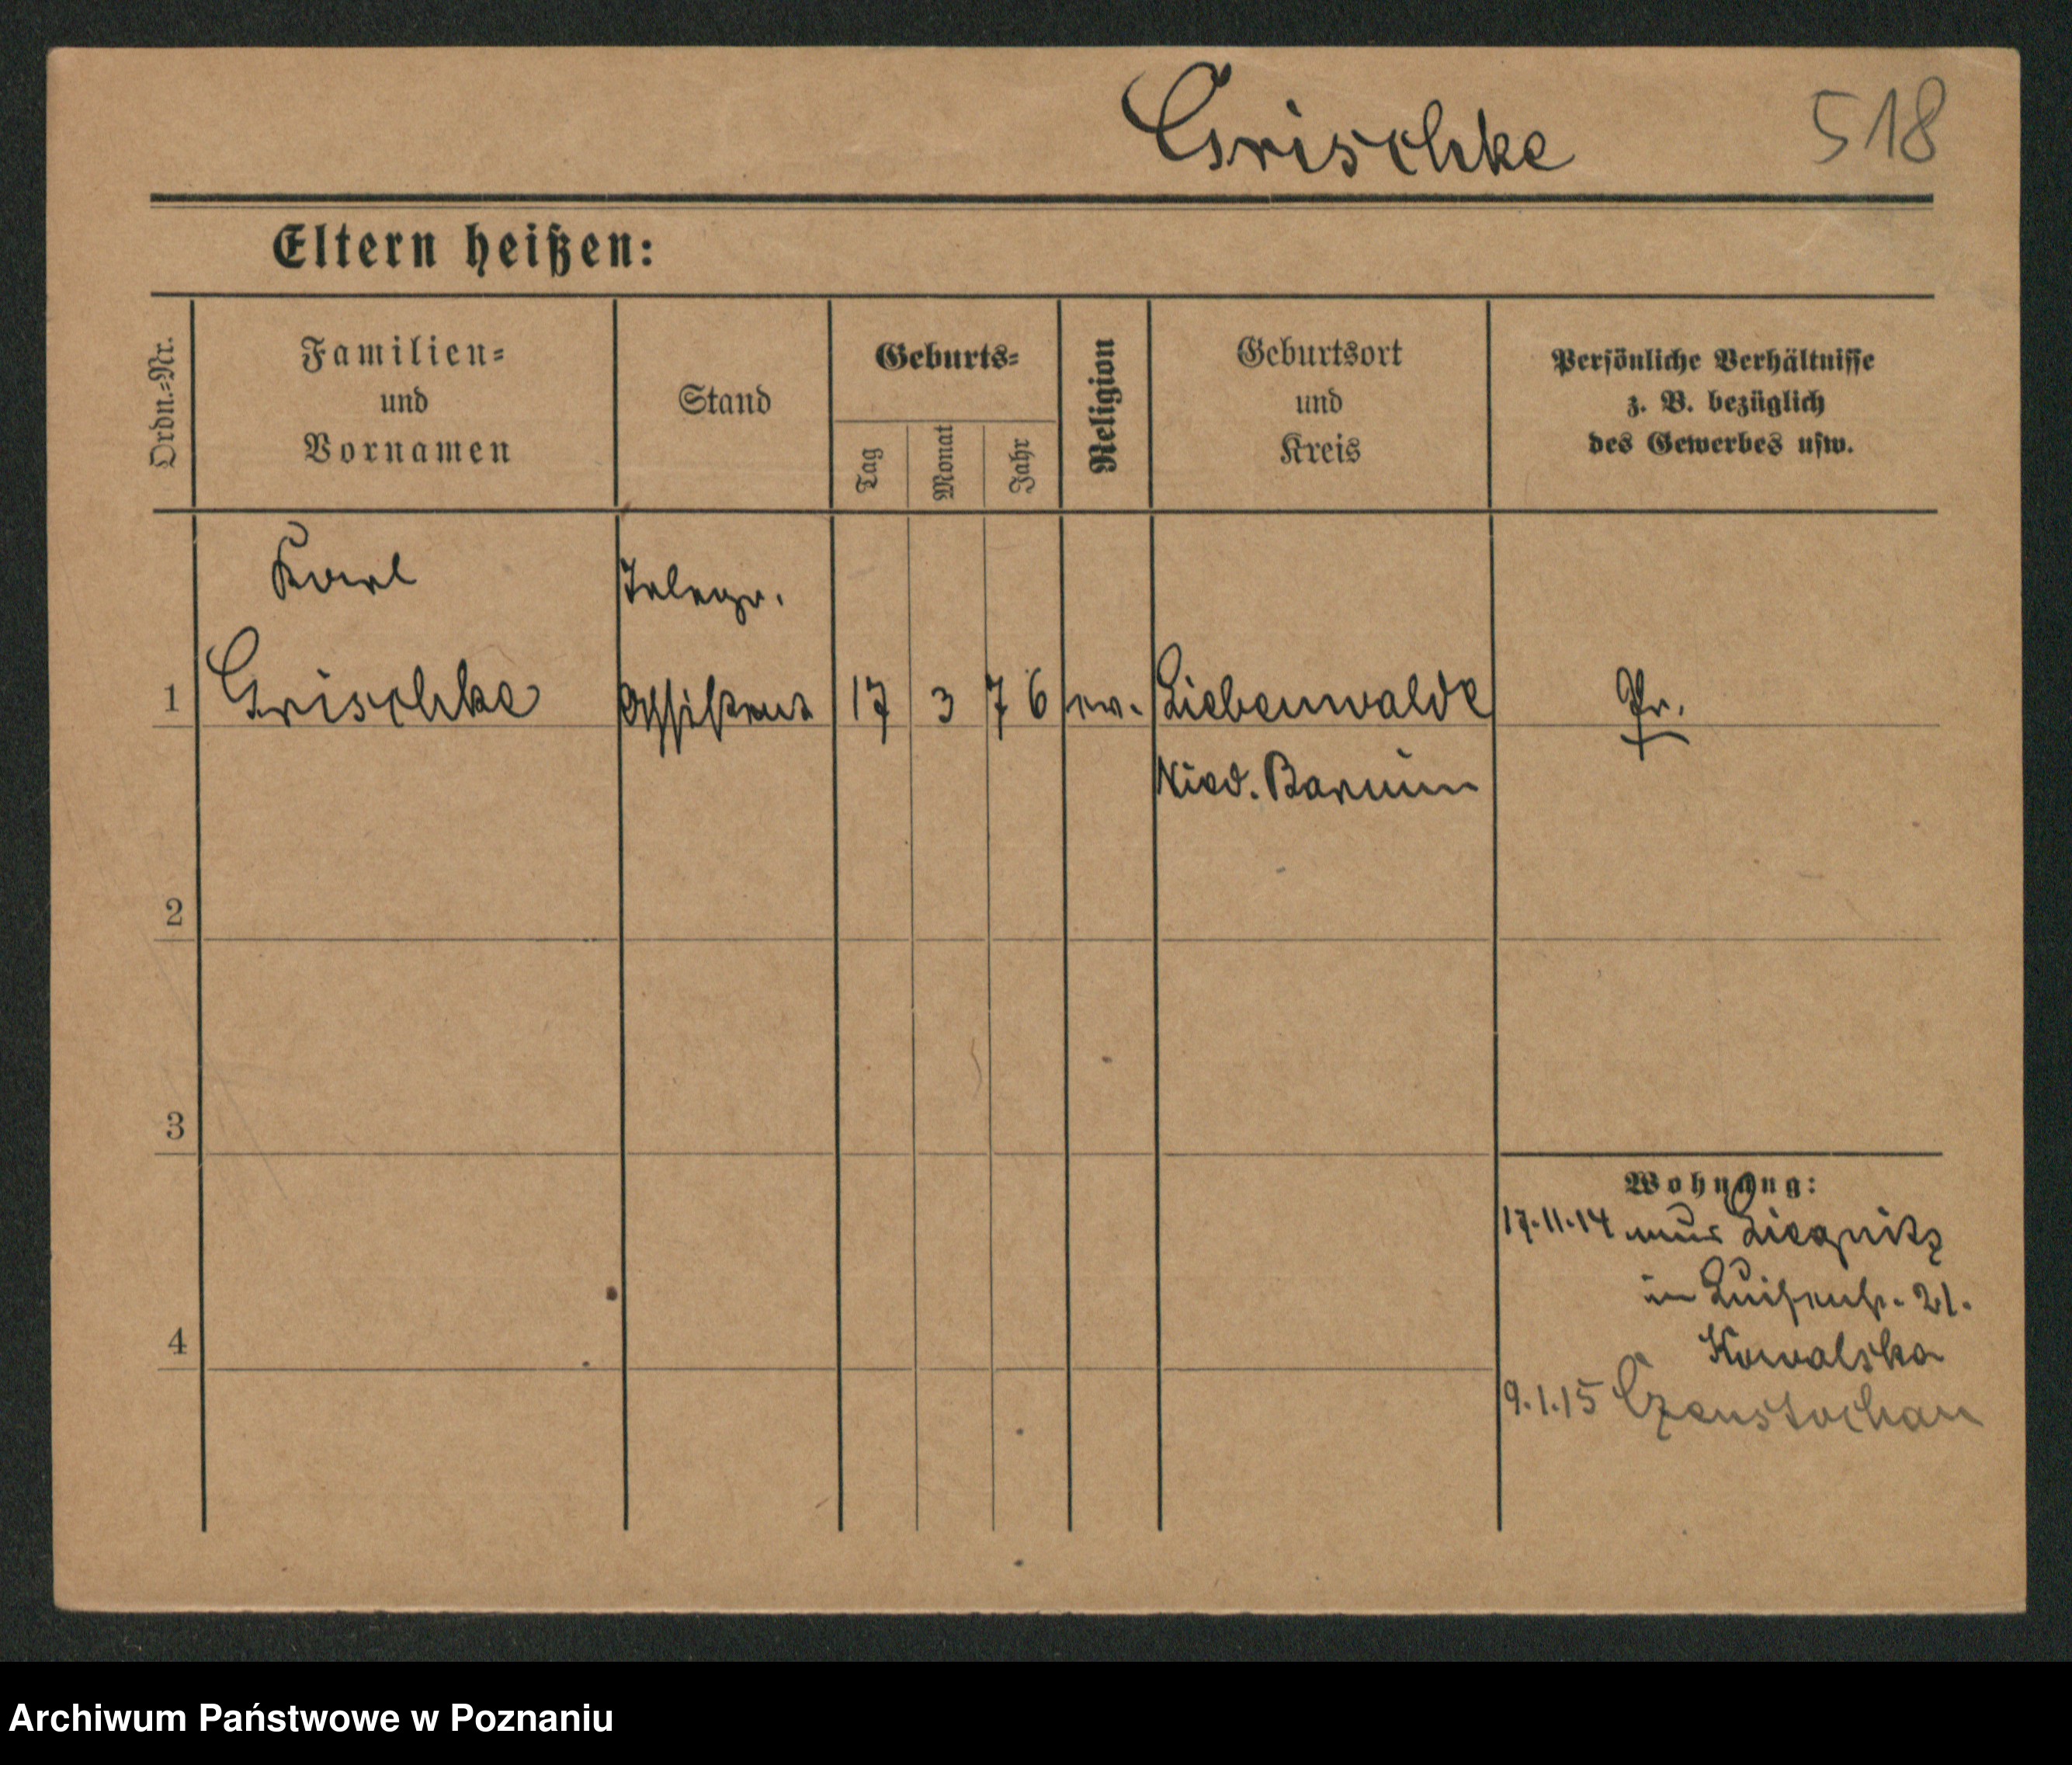 Grischke 518
Eltern heißen:
Ordn.=Nr.
Familien=
und
Vornamen
Stand
Geburts=
Tag
Monat
Jahr
Religion
Geburtsort
und
Kreis
Persönliche Verhältnisse
z. B. bezüglich
des Gewerbes usw.
Karl Telegr.
1 Grischke Assistent 17 3 76 ev. Liebenwalde Pr.
Nied. Barnim
2
3
Wohnung:
17.11.14 aus Liegnitz
in Luisenstr. 21.
4
Kowalska
9.1.15 Czenstochau
Archiwum Państwowe w Poznaniu